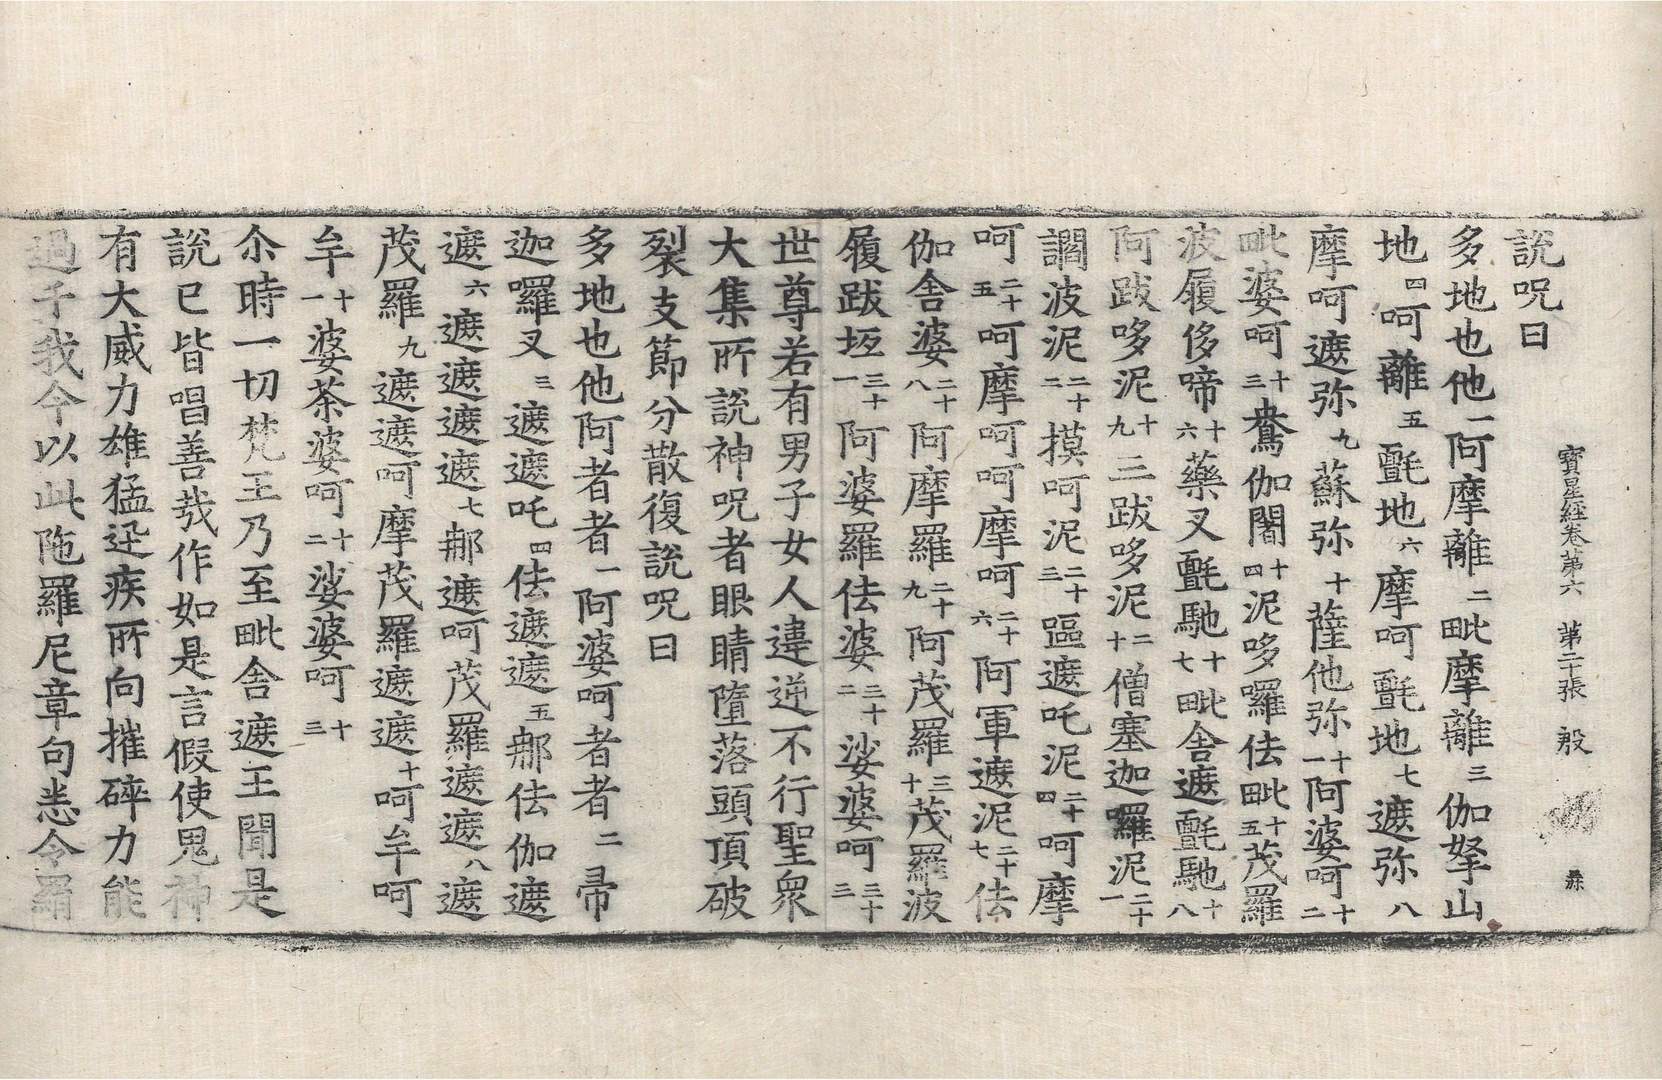 寶星經卷第六 第二十張 殷
說呪曰
多地也他一阿摩離二毗摩離三伽拏山
地四呵離五氎地六摩呵氎地七遮弥八
摩呵遮弥九蘇弥十薩他弥十一阿婆呵十二
毗婆呵十三鴦伽闍十四泥哆囉佉毗十五茂羅
波履侈啼十六藥叉氎馳十七毗舍遮氎馳十八
阿跋哆泥十九三跋哆泥二十僧塞迦囉泥二十一
讕波泥二十二摸呵泥二十三區遮吒泥二十四呵摩
呵二十五呵摩呵呵摩呵二十六阿軍遮泥二十七佉
伽舍婆二十八阿摩羅二十九阿茂羅三十茂羅波
履跋坘三十一阿婆羅佉婆三十二娑婆呵三十三
世尊若有男子女人違逆不行聖眾
大集所說神呪者眼睛墮落頭頂破
裂支節分散復說呪曰
多地也他阿者者一阿婆呵者者二帚
迦囉叉三遮遮吒四佉遮遮五那佉伽遮
遮六遮遮遮遮七那遮呵茂羅遮遮八遮
茂羅九遮遮呵摩茂羅遮遮十呵牟呵
牟十一婆荼婆呵十二娑婆呵十三
尒時一切梵王乃至毗舍遮王聞是
說已皆唱善哉作如是言假使鬼神
有大威力雄猛迅疾所向摧碎力能
過千我今以此陁羅尼章句悉令羂